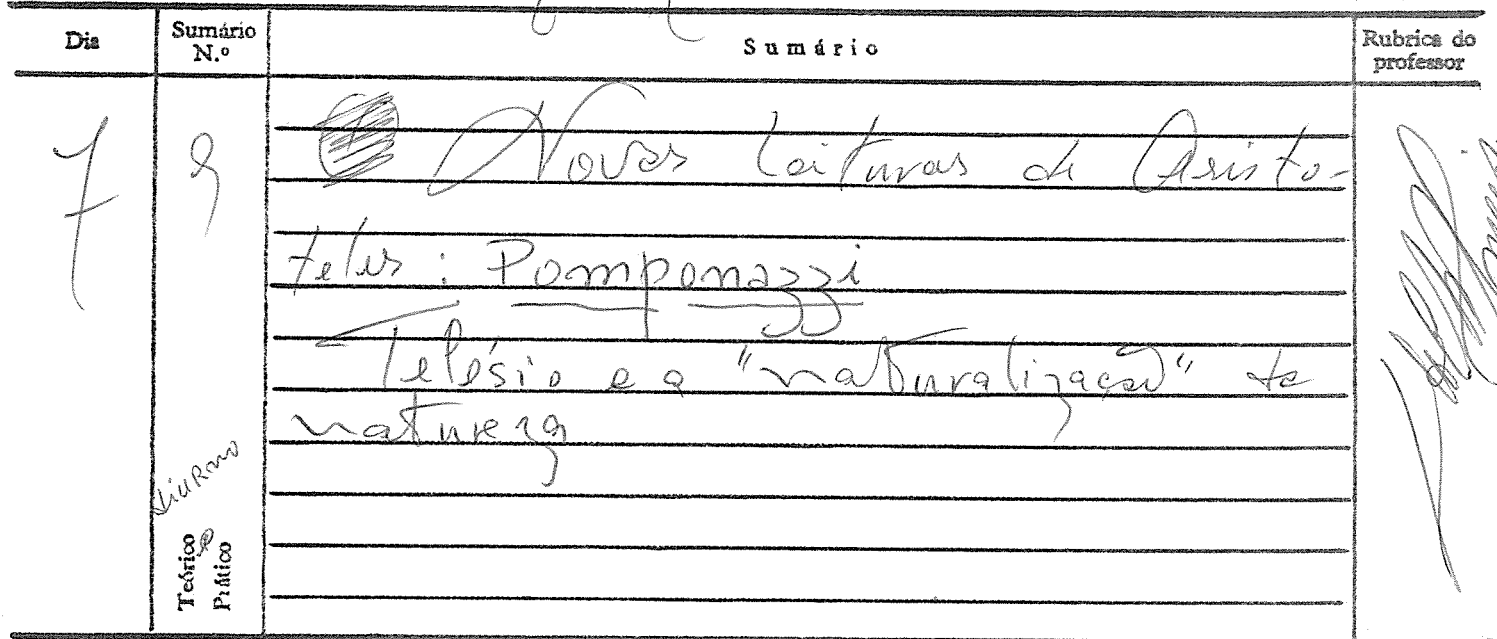 Dia
Sumário N.º
Sumário
Rubrica do professor
7
9
Novas leituras de Aristo-
teles : Pomponazzi
Telésio e a "naturalização" da
natureza
Diurno
Teórico
Prático